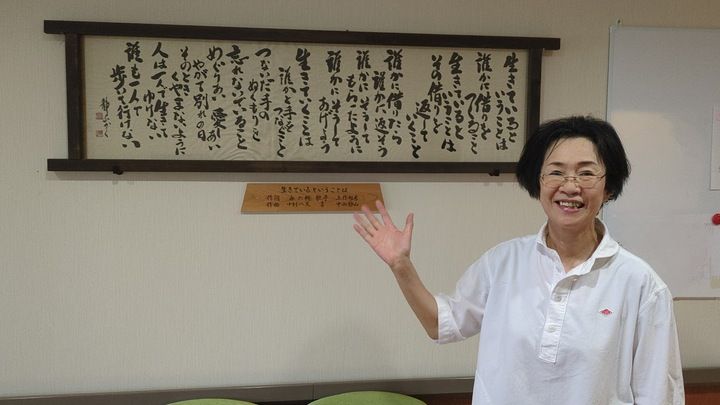 生きていると
いうことは
誰かに借りを
つくること
生きていると
いうことは
その借りを
返して
いくこと
誰かに借りたら
誰かに返そう
誰かにそうして
もらったように
誰かにそうして
あげよう
生きていくことは
誰かと手を
つなぐこと
つないだ手の
ぬくもりを
忘れないでいること
めぐりあい 愛しあい
やがて別れの日
そのとき
くやまないように
人は一人で生きて
ゆけない
誰も一人で
歩いて行けない
生きているということは
作詞 永六輔 歌手
作曲 中村八大 書